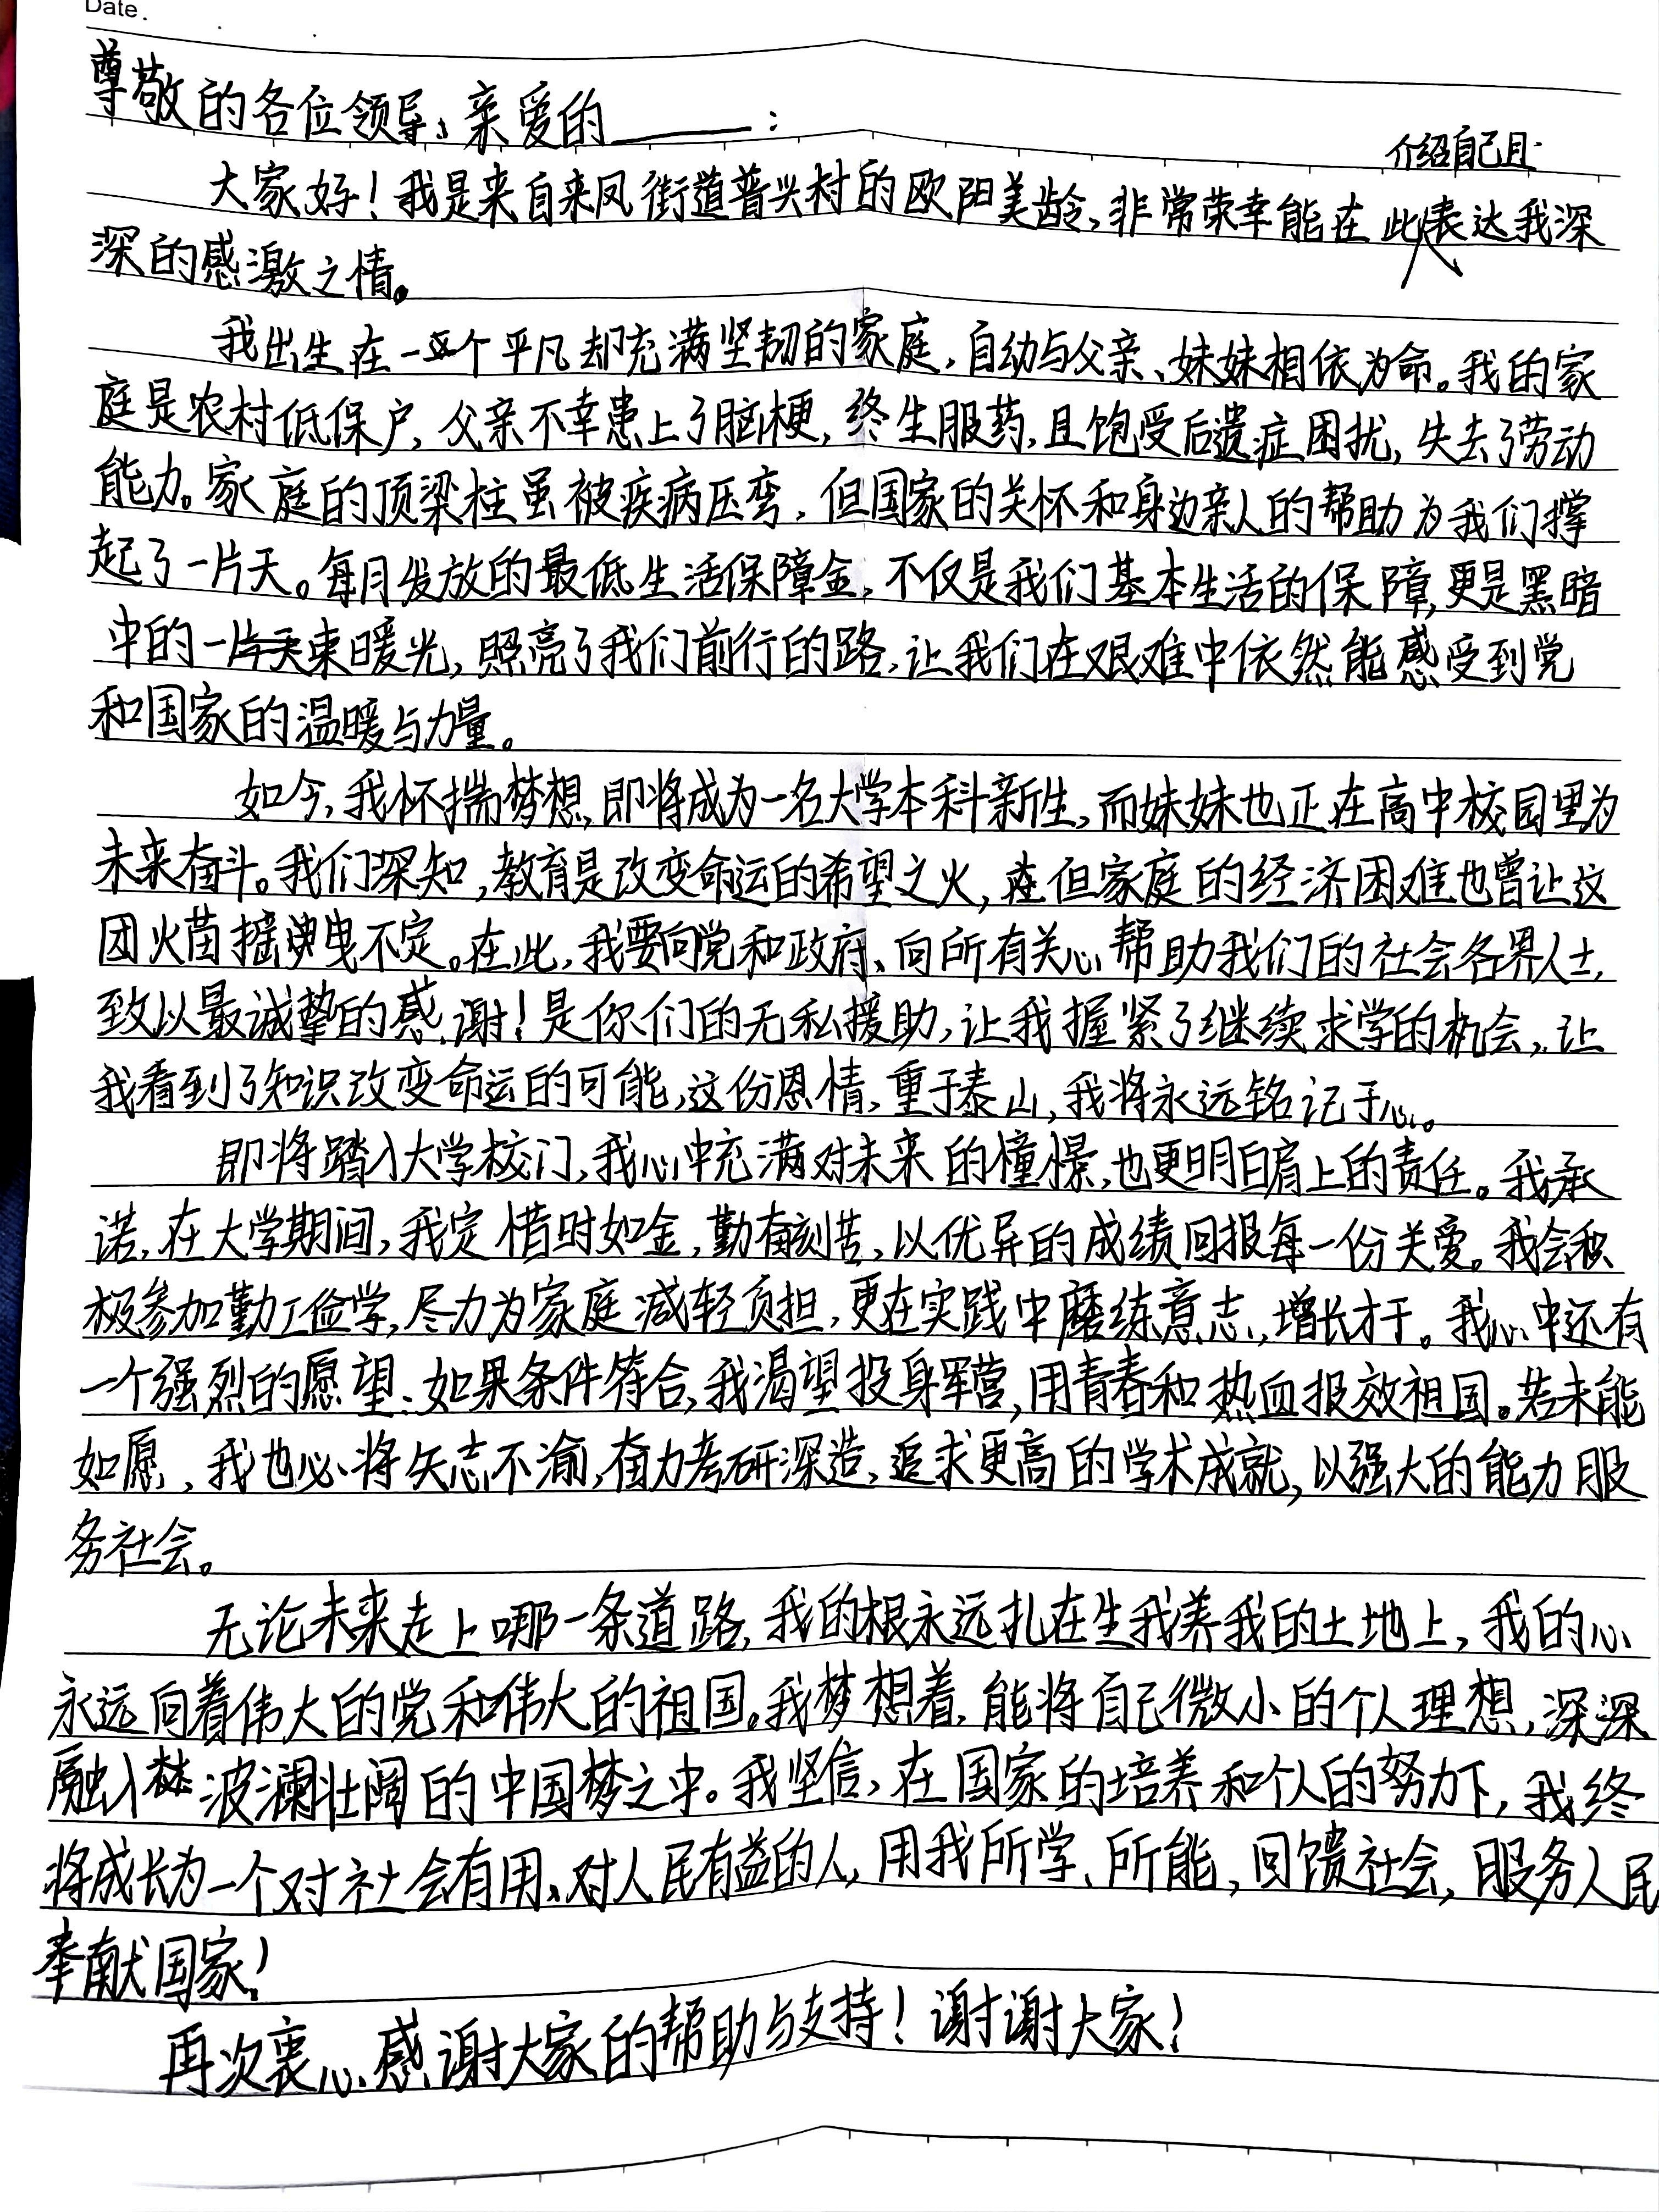 Date.
尊敬的各位领导、亲爱的______:
介绍自己且
大家好!我是来自来凤街道普兴村的欧阳美龄,非常荣幸能在此表达我深
深的感激之情。
我出生在一个平凡却充满坚韧的家庭,自幼与父亲、妹妹相依为命。我的家
庭是农村低保户,父亲不幸患上了脑梗,终生服药,且饱受后遗症困扰,失去了劳动
能力。家庭的顶梁柱虽被疾病压弯,但国家的关怀和身边亲人的帮助为我们撑
起了一片天。每月发放的最低生活保障金,不仅是我们基本生活的保障,更是黑暗
中的一束暖光,照亮了我们前行的路,让我们在艰难中依然能感受到党
和国家的温暖与力量。
如今,我怀揣梦想,即将成为一名大学本科新生,而妹妹也正在高中校园里为
未来奋斗。我们深知,教育是改变命运的希望之火,但家庭的经济困难也曾让这
团火苗摇曳不定。在此,我要向党和政府、向所有关心帮助我们的社会各界人士,
致以最诚挚的感谢!是你们的无私援助,让我握紧了继续求学的机会,让
我看到了知识改变命运的可能,这份恩情,重于泰山,我将永远铭记于心。
即将踏入大学校门,我心中充满对未来的憧憬,也更明白肩上的责任。我承
诺,在大学期间,我定惜时如金,勤奋刻苦,以优异的成绩回报每一份关爱。我会积
极参加勤工俭学,尽力为家庭减轻负担,更在实践中磨练意志,增长才干。我心中还有
一个强烈的愿望:如果条件符合,我渴望投身军营,用青春和热血报效祖国。若未能
如愿,我也必将矢志不渝,奋力考研深造,追求更高的学术成就,以强大的能力服
务社会。
无论未来走上哪一条道路,我的根永远扎在生我养我的土地上,我的心
永远向着伟大的党和伟大的祖国。我梦想着,能将自己微小的个人理想,深深
融入波澜壮阔的中国梦之中。我坚信,在国家的培养和个人的努力下,我终
将成长为一个对社会有用、对人民有益的人,用我所学、所能,回馈社会,服务人民
奉献国家!
再次衷心感谢大家的帮助与支持!谢谢大家!